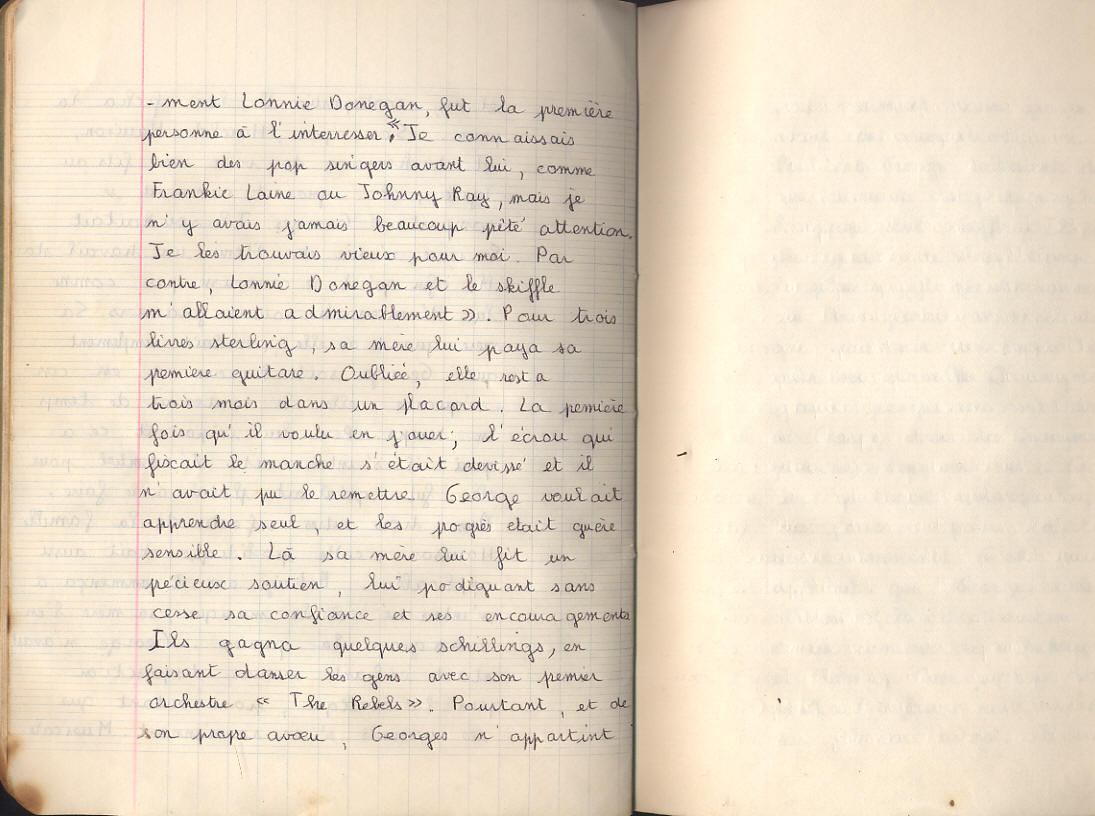 - ment Lonnie Donegan, fut la première
personne à l'interresser. « Je connaissais
bien des pop singers avant lui, comme
Frankie Laine ou Johnny Ray, mais je
n'y avais jamais beaucoup pêté attention.
Je les trouvais vieux pour moi. Par
contre, Lonnie Donegan et le skiffle
m'allaient admirablement ». Pour trois
livres sterling, sa mère lui paya sa
pemière guitare. Oubliée, elle resta
trois mois dans un placard. La pemière
fois qu'il voulu en jouer, l'écrou qui
fixait le manche s'était devissé et il
n'avait pu le remettre George voulait
apprendre seul, et les pogrès etait guère
sensible. Là sa mère lui fit un
pécieux soutien, lui podiguant sans
cesse sa confiance et ses encouragements
Ils gagna quelques schillings, en
faisant danser les gens avec son pemier
orchestre « The Rebels ». Pourtant, et de
son propre avoeu, Georges n'appartint